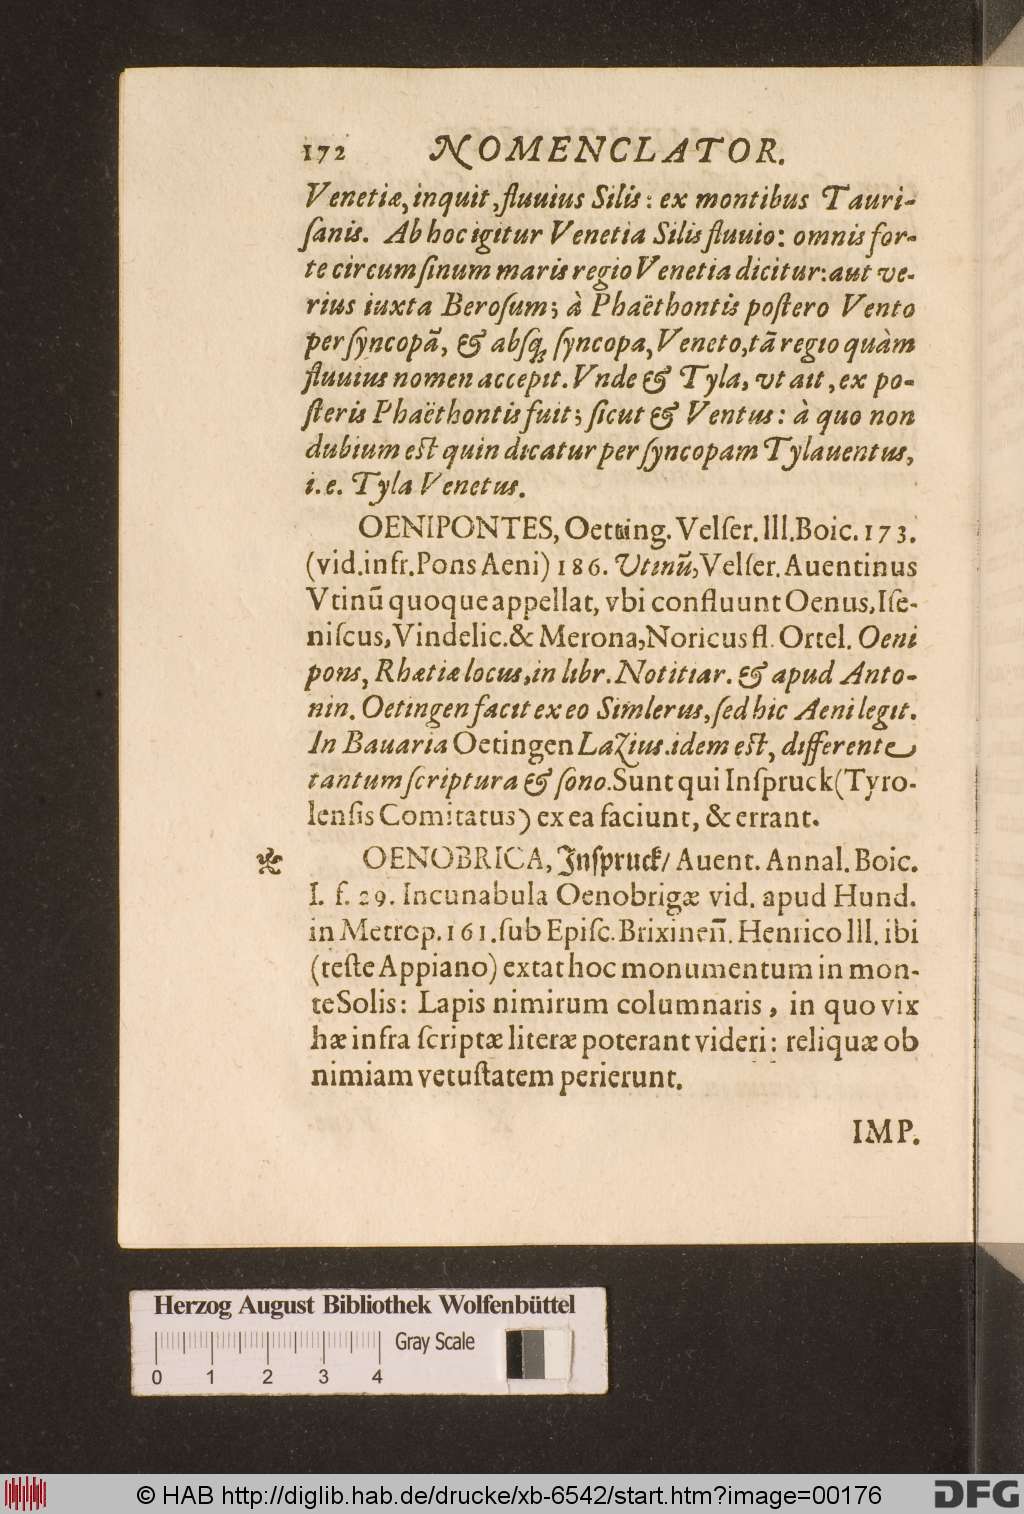 172 NOMENCLATOR.
Venetiæ, inquit, fluuius Silis: ex montibus Tauri-
ſanis. Ab hoc igitur Venetia Silis fluuio: omnis for-
te circum ſinum maris regio Venetia dicitur: aut ve-
rius iuxta Beroſum; à Phaëthontis poſtero Vento
per ſyncopã, & abſq; ſyncopa, Veneto, tã regio quàm
fluuius nomen accepit. Vnde & Tyla, vt ait, ex po-
ſteris Phaëthontis fuit; ſicut & Ventus: à quo non
dubium eſt quin dicatur per ſyncopam Tylauentus,
i.e. Tyla Venetus.
OENIPONTES, Oetting. Velſer. lll. Boic. 173.
(vid. infr. Pons Aeni) 186. Vtinũ, Velſer. Auentinus
Vtinũ quoque appellat, vbi confluunt Oenus, Iſe-
niſcus, Vindelic. & Merona, Noricus fl. Ortel. Oeni
pons, Rhætiæ locus, in libr. Notitiar. & apud Anto-
nin. Oetingen facit ex eo Simlerus, ſed hic Aeni legit.
In Bauaria Oetingen Lazius. idem eſt, differente
tantum ſcriptura & ſono. Sunt qui Inſpruck (Tyro-
lenſis Comitatus) ex ea faciunt, & errant.
OENOBRICA, Jnſpruck/ Auent. Annal. Boic.
I. f. 29. Incunabula Oenobrigæ vid. apud Hund.
in Metrop. 161. ſub Epiſc. Brixineñ. Henrico lll. ibi
(teſte Appiano) extat hoc monumentum in mon-
te Solis: Lapis nimirum columnaris, in quo vix
hæ infra ſcriptæ literæ poterant videri: reliquæ ob
nimiam vetuſtatem perierunt.
IMP.
Herzog August Bibliothek Wolfenbüttel
Gray Scale
0 1 2 3 4
© HAB http://diglib.hab.de/drucke/xb-6542/start.htm?image=00176
DFG